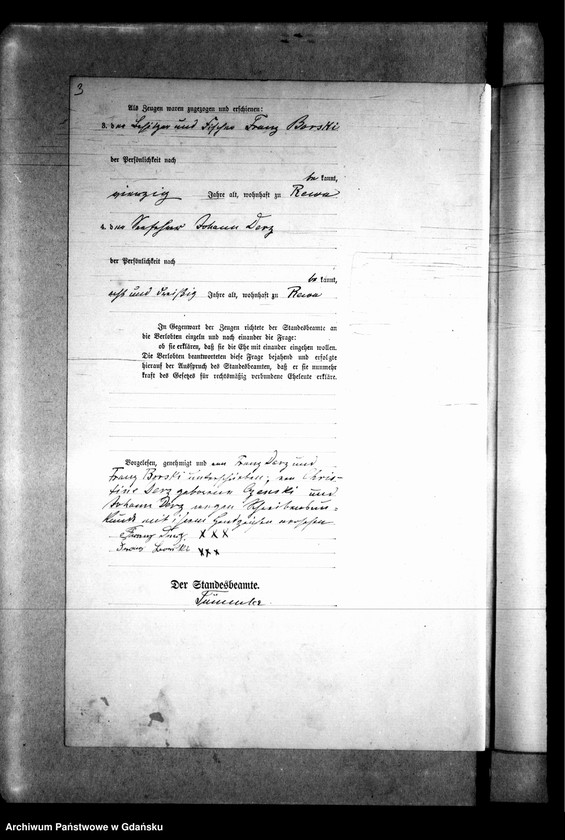 3
Als Zeugen waren zugezogen und erschienen:
3. der Besitzer und Fischer Franz Borski
der Persönlichkeit nach
be kannt,
vierzig Jahre alt, wohnhaft zu Rewa
4. der Seefahrer Johann Derz
der Persönlichkeit nach
be kannt,
acht und dreißig Jahre alt, wohnhaft zu Rewa
In Gegenwart der Zeugen richtete der Standesbeamte an
die Verlobten einzeln und nach einander die Frage:
ob sie erklären, daß sie die Ehe mit einander eingehen wollen.
Die Verlobten beantworteten diese Frage bejahend und erfolgte
hierauf der Ausspruch des Standesbeamten, daß er sie nunmehr
kraft des Gesetzes für rechtsmäßig verbundene Eheleute erkläre.
Vorgelesen, genehmigt und von Franz Derz und
Franz Borski unterschrieben, von Chris-
tine Derz geborenen Czenski und
Johann Derz wegen Schreibensun-
kunde mit ihrem Handzeichen versehen
Franz Derz. X X X
Franz Borski X X X
Der Standesbeamte.
Archiwum Państwowe w Gdańsku